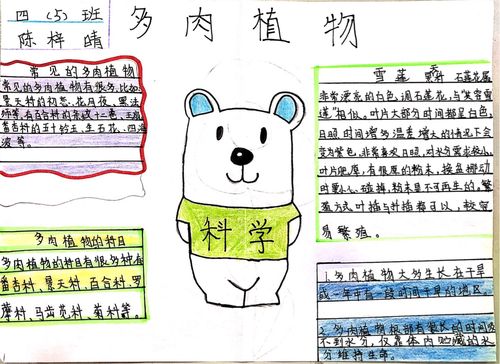 四(5)班
陈梓晴
多肉植物
常见的多肉植物
常见的多肉植物有很多,比如
景天科的初恋、花月夜、黑法
师等,有百合科的
番杏科的五十铃玉、生石花、四海
波等。
多肉植物的科目
多肉植物的科目有很多种,有
番杏科、景天科、百合科、罗
藦科、马齿苋科、菊科等。
科学
雪莲 景天科 石莲花属
非常漂亮的白色
叶片大部分时间都是白色,
日照时间增多温差增大的情况下会
变为紫色。非常喜欢日照,对水分需求较小,
叶片肥厚,有很厚的粉末,
时要小心碰掉,粉末是不可再生的,繁
殖方式叶插与扦插都可以,较容
易繁殖。
1.多肉植物大多生长在干旱
或一年中有一段时间干旱的地区。
2.多肉植物根部有很长的时间吸
不到水分,仅靠体内贮藏的水
分维持生命。